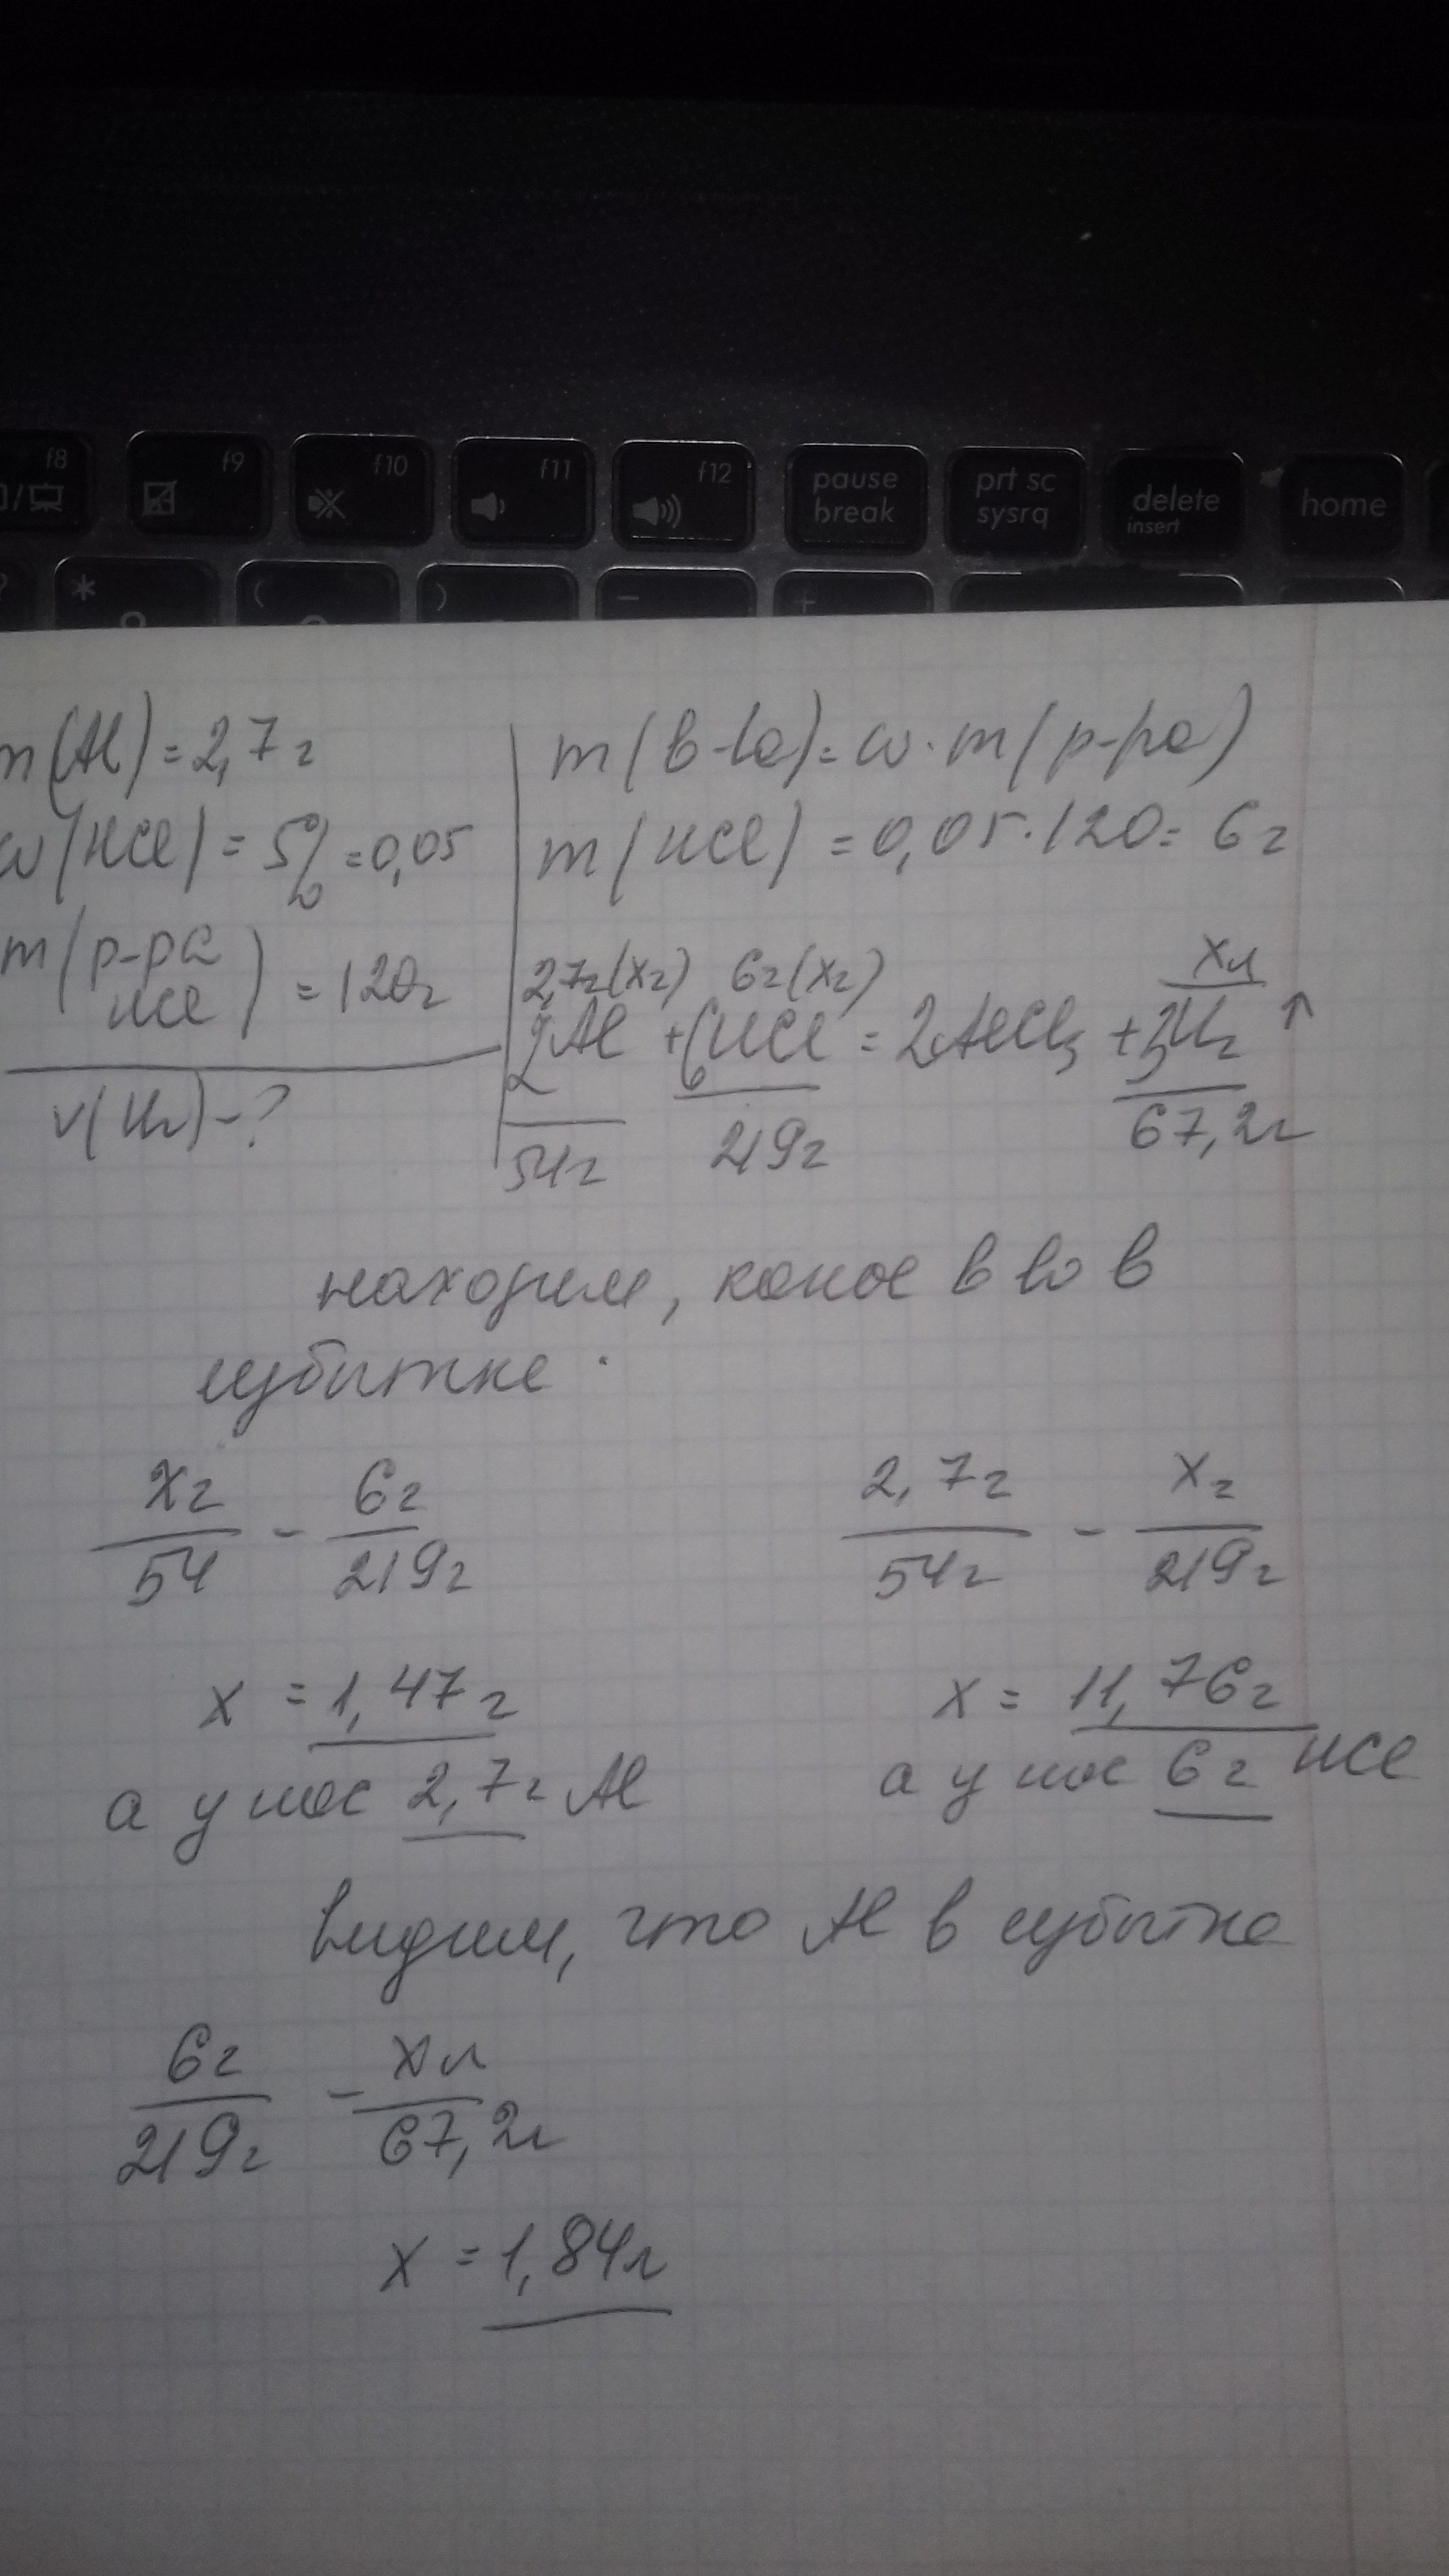 f8 f9 f10 f11 f12 pause break prt sc sysrq delete insert home
? * ( ) − +
m(Al) = 2,7г
w(HCl) = 5% = 0,05
m(р-ра HCl) = 120г
v(H₂) - ?
m(в-ва) = w · m(р-ра)
m(HCl) = 0,05 · 120 = 6г
2,7г(xг) 6г(xг) xл
2Al + 6HCl = 2AlCl₃ + 3H₂ ↑
54г 219г 67,2л
находим, какое в во в
избытке.
xг/54 - 6г/219г
2,7г/54г - xг/219г
x = 1,47г
x = 11,76г
а у нас 2,7г Al
а у нас 6г HCl
видим, что Al в избытке
6г/219г - xл/67,2л
x = 1,84л